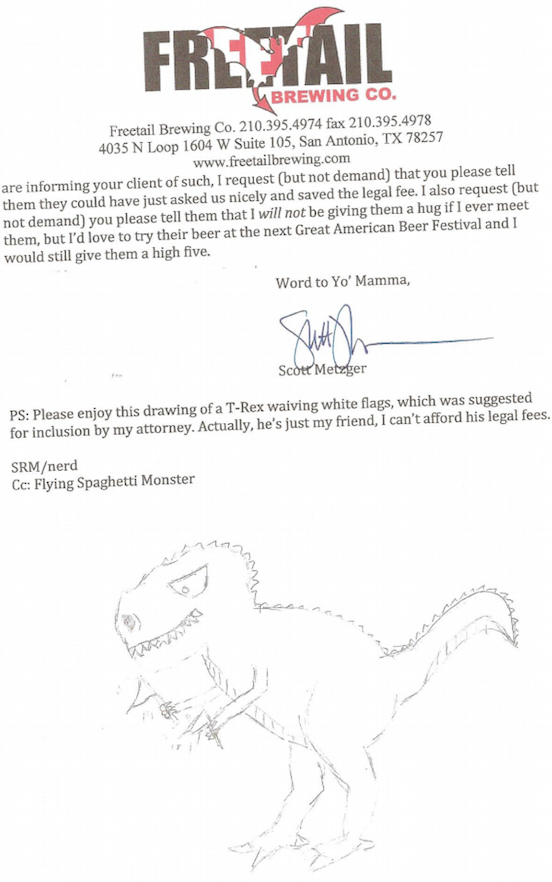 FREETAIL
BREWING CO.
Freetail Brewing Co. 210.395.4974 fax 210.395.4978
4035 N Loop 1604 W Suite 105, San Antonio, TX 78257
www.freetailbrewing.com
are informing your client of such, I request (but not demand) that you please tell
them they could have just asked us nicely and saved the legal fee. I also request (but
not demand) you please tell them that I will not be giving them a hug if I ever meet
them, but I'd love to try their beer at the next Great American Beer Festival and I
would still give them a high five.
Word to Yo' Mamma,
Scott Metzger
PS: Please enjoy this drawing of a T-Rex waiving white flags, which was suggested
for inclusion by my attorney. Actually, he's just my friend, I can't afford his legal fees.
SRM/nerd
Cc: Flying Spaghetti Monster